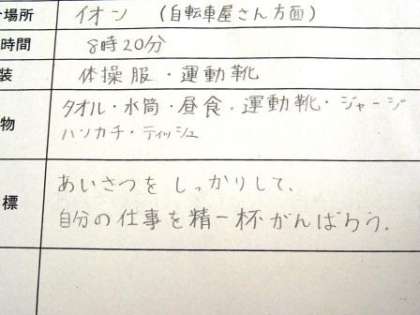 場所 イオン (自転車屋さん方面)
時間 8時20分
装 体操服・運動靴
物 タオル・水筒・昼食・運動靴・ジャージ
ハンカチ・ティッシュ
標 あいさつをしっかりして、
自分の仕事を精一杯がんばろう.